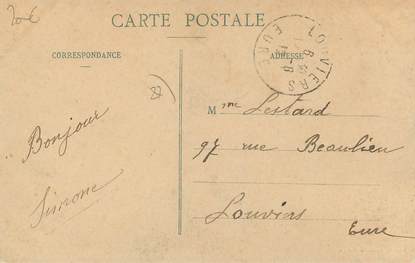 20€
CARTE POSTALE
CORRESPONDANCE
ADRESSE
LOUVIERS
EURE
Bonjour
Simone
Mme Lestard
97 rue Beaulieu
Louviers
Eure